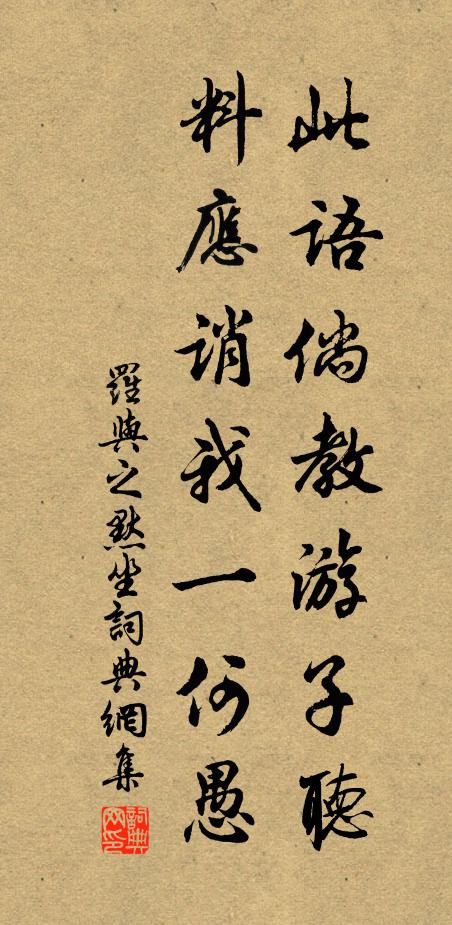 此語倘教游子聽
料應誚我一何愚
羅與之默坐詞典網集
詞典网印